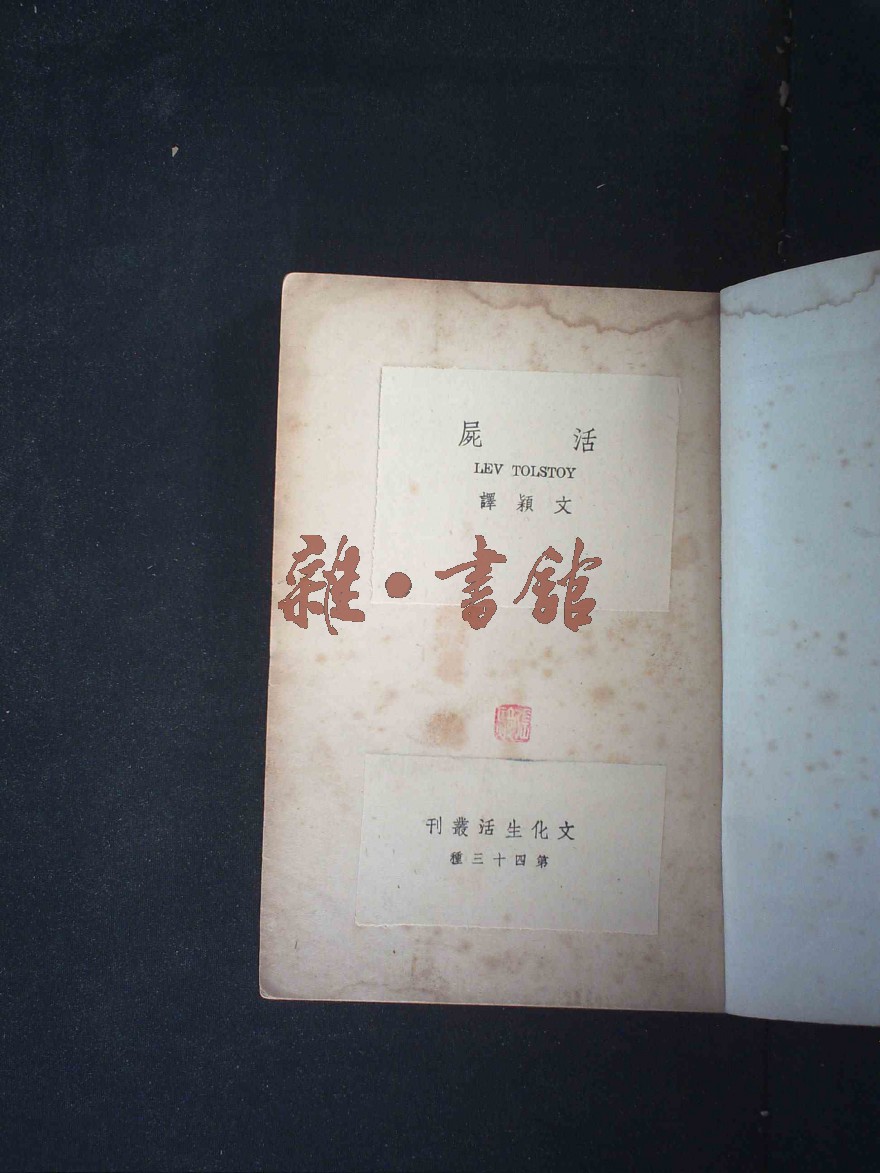 活屍
LEV TOLSTOY
文穎譯
雜·書館
文化生活叢刊
第四十三種